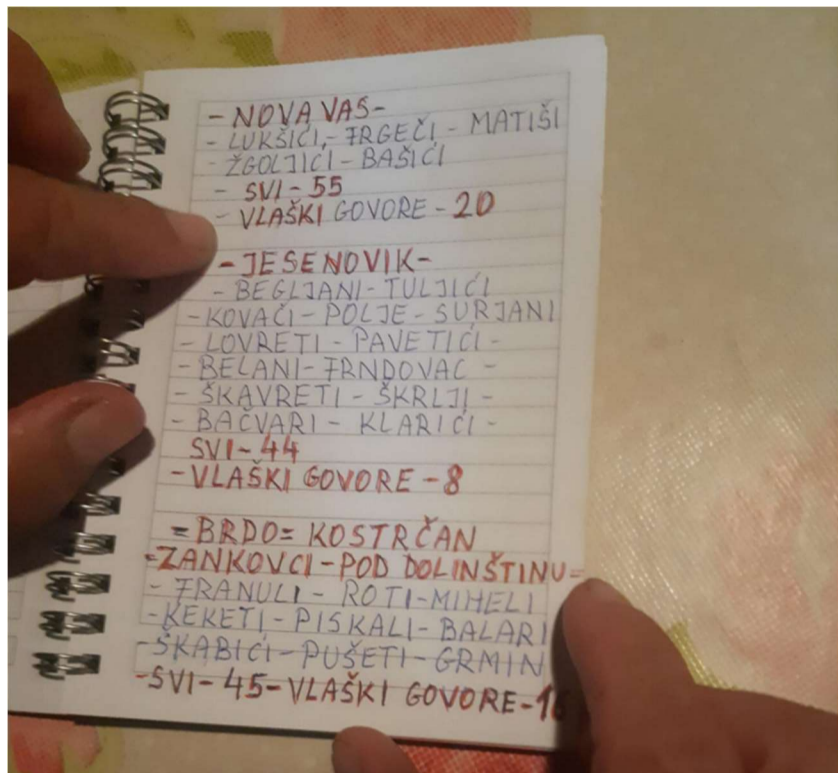 - NOVA VAS -
- LUKŠIĆI - FRGEČI - MATIŠI
- ŽGOLJIĆI - BAŠIĆI
- SVI - 55
- VLAŠKI GOVORE - 20
- JESENOVIK -
- BEGLJANI - TULJIĆI
- KOVAČI - POLJE - SURJANI
- LOVRETI - PAVETIĆI -
- BELANI - FRNDOVAC -
- ŠKAVRETI - ŠKRLJI -
- BAČVARI - KLARIĆI -
SVI - 44
- VLAŠKI GOVORE - 8
= BRDO = KOSTRČAN
= ZANKOVCI - POD DOLINŠTINU =
- FRANULI - ROTI - MIHELI
- KEKETI - PISKALI - BALARI
- ŠKABIĆI - PUŠETI - GRMIN
- SVI - 45 - VLAŠKI GOVORE - 16